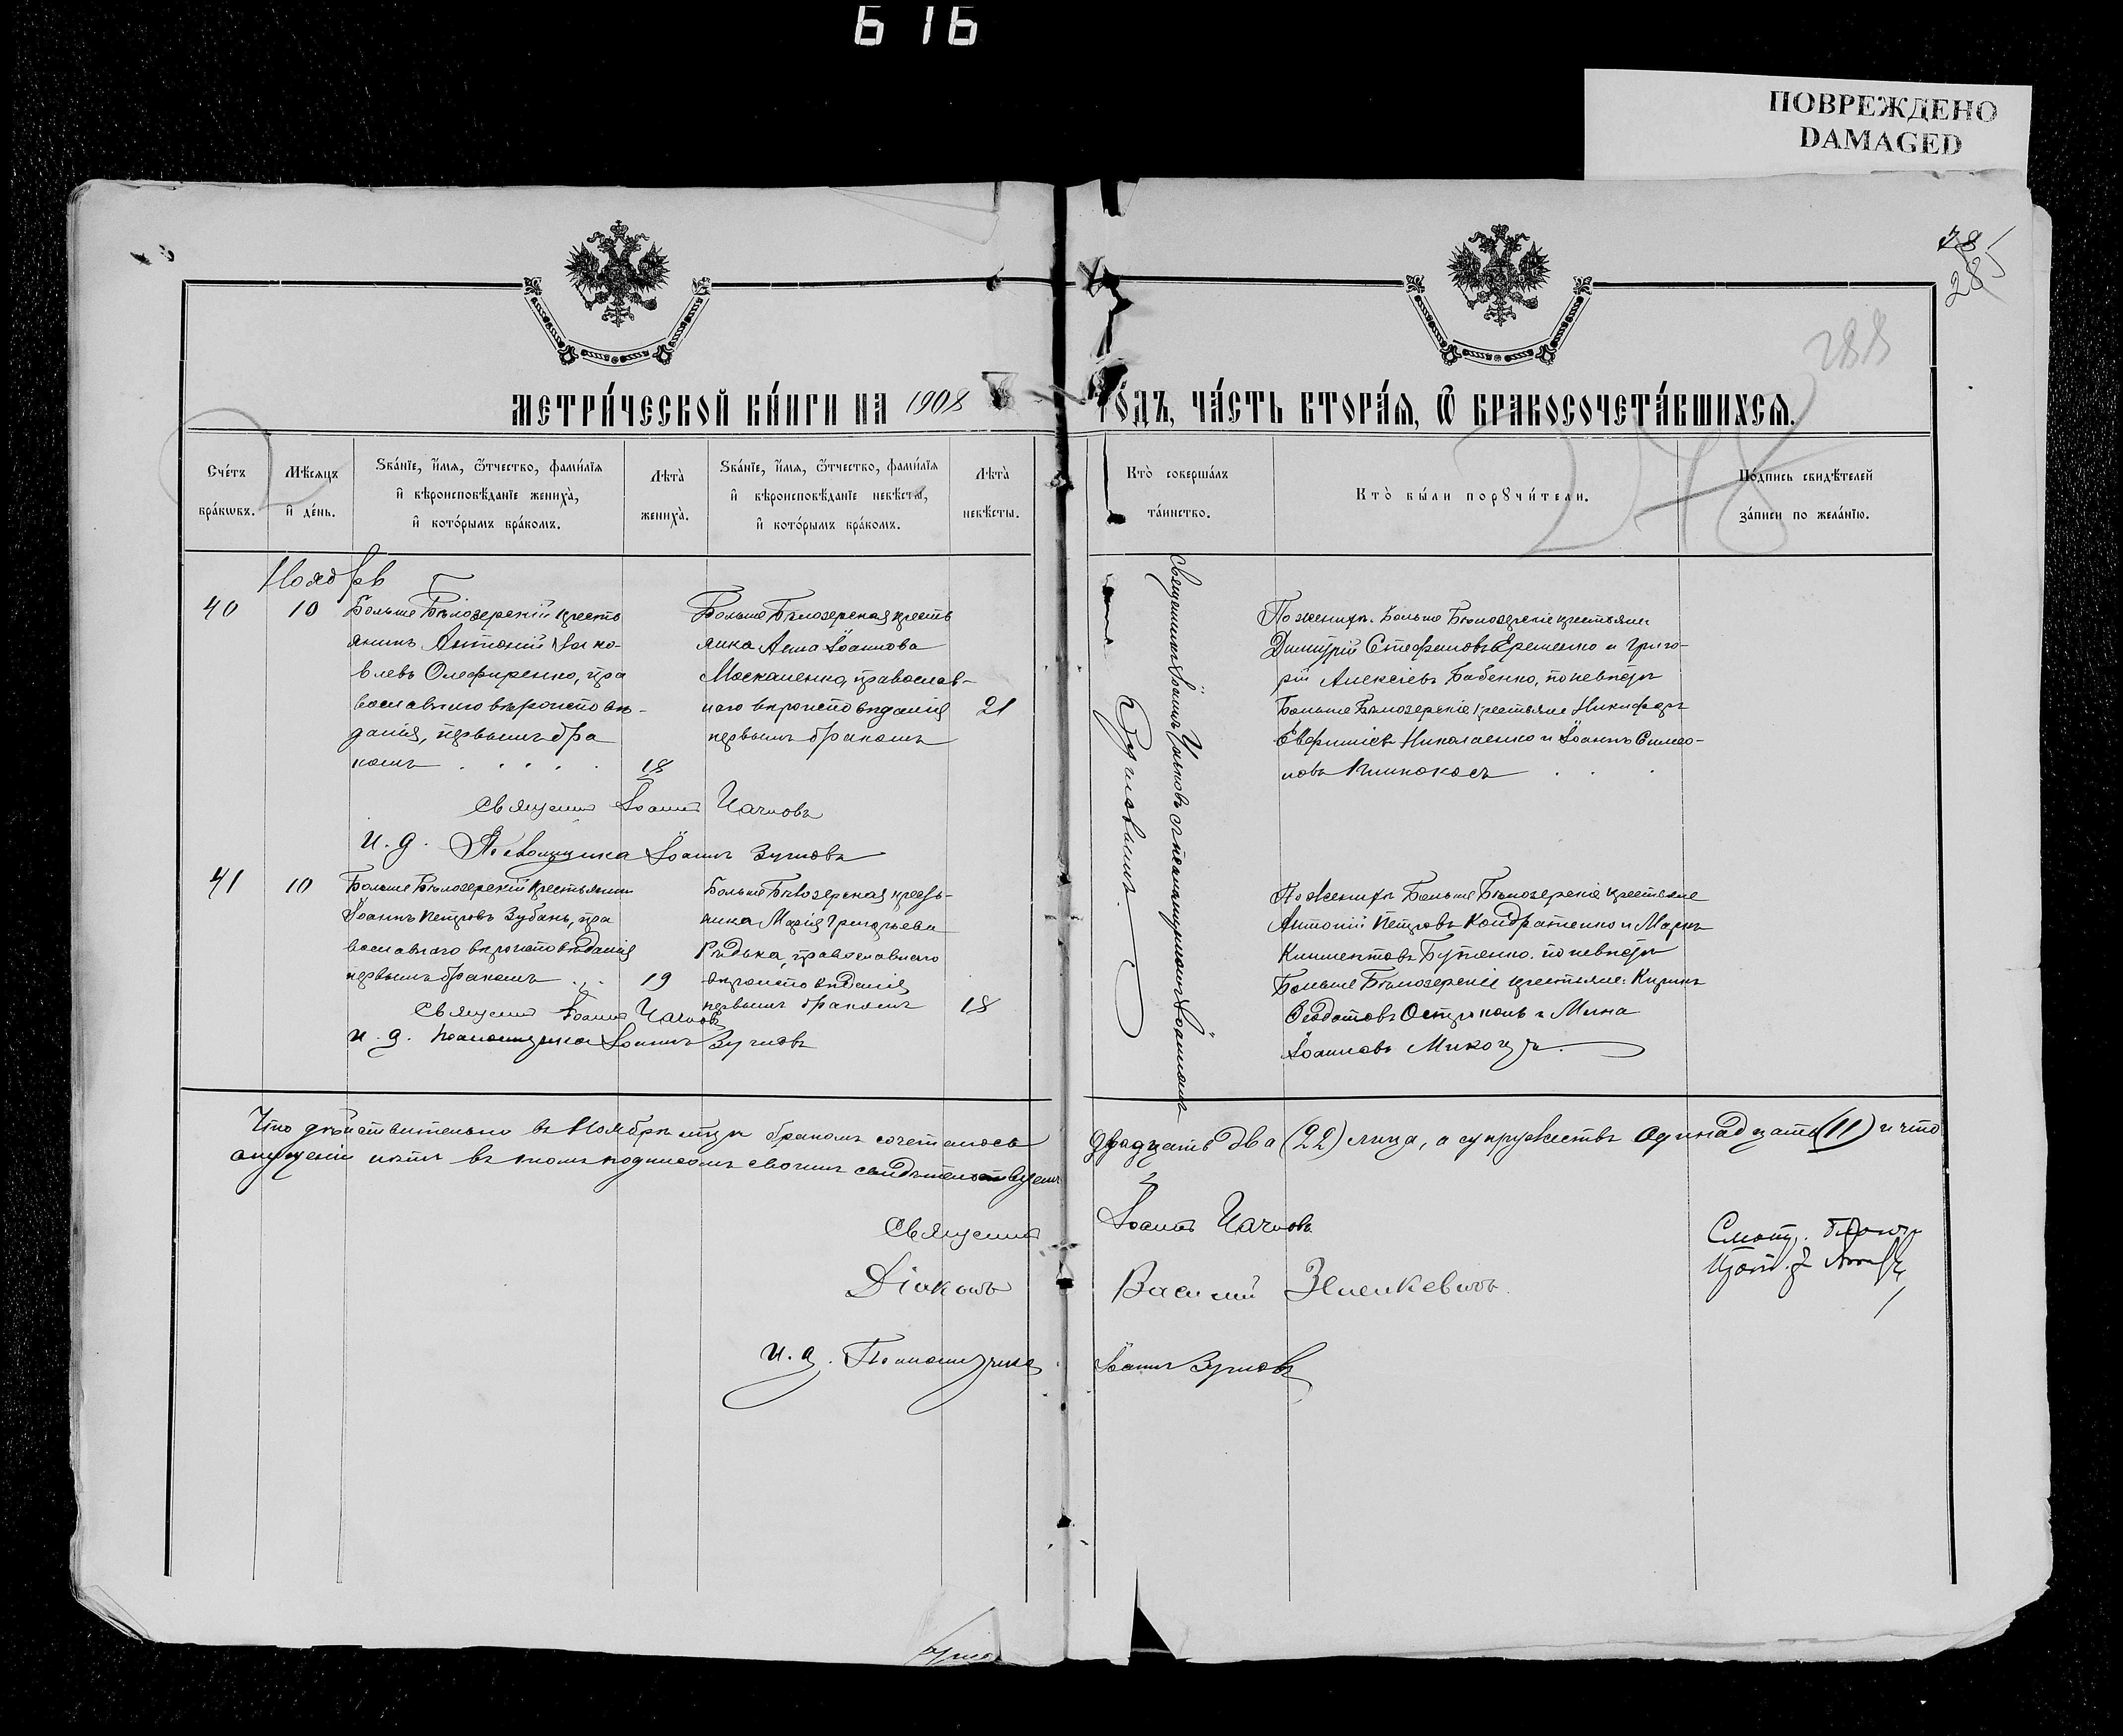 616
ПОВРЕЖДЕНО
DAMAGED
38
285
288
МЕТРИ́ЧЕСКОЙ КНИ́ГИ НА 1908 ГО́ДЪ, ЧА́СТЬ ВТОРА́Я, Ѿ БРАКОСОЧЕТА́ВШИХСЯ.
Сче́тъ бра́кѡвъ.
Мѣ́сяцъ и҆ де́нь.
Ѕва́нїе, и҆́мя, ѻ҆́тчество, фами́лїя и҆ вѣроисповѣ́данїе жениха̀, и҆ кото́рымъ бра́комъ.
Лѣ́та жениха̀.
Ѕва́нїе, и҆́мя, ѻ҆́тчество, фами́лїя и҆ вѣроисповѣ́данїе невѣ́сты, и҆ кото́рымъ бра́комъ.
Лѣ́та невѣ́сты.
Кто̀ соверша́лъ та́инство.
Кто̀ бы́ли порꙋчи́тели.
По́дпись свидѣ́телей за́писи по жела́нїю.
Ноябрь
40
10
Больше Бѣлозерскій кресть
янинъ Антоній Іако-
влевъ Олефиренко, пра
вославнаго вѣроисповѣ-
данія, первымъ бра
комъ . . . . .
18
Больше Бѣлозерская кресть
янка Анна Іоаннова
Москаленко, православ-
наго вѣроисповѣданія
первымъ бракомъ
21
По женихѣ: Больше Бѣлозерскіе крестьяне
Димитрій Стефановъ Еременко и Григо-
рій Алексіевъ Бабенко, по невѣстѣ
Больше Бѣлозерскіе крестьяне Никифоръ
Евфиміевъ Николаенко и Іоаннъ Симео-
новъ Клинокосъ . .
Священникъ Іоаннъ
Священникъ Іоаннъ
и. д. Псаломщика Іоаннъ Зугловъ
41
10
Больше Бѣлозерскій крестьянинъ
Іоаннъ Петровъ Зубань, пра
вославнаго вѣроисповѣданія
первымъ бракомъ . .
19
Больше Бѣлозерская кресть-
янка Марія Григорьева
Рѣдька, православнаго
вѣроисповѣданія
первымъ бракомъ
18
По женихѣ Больше Бѣлозерскіе крестьяне
Антоній Петровъ Кондратенко и Маркъ
Климентовъ Бутенко. по невѣстѣ
Больше Бѣлозерскіе крестьяне: Кириллъ
Ѳеодотовъ и Мина
Іоанновъ
Священникъ Іоаннъ
и. д. Псаломщика Іоаннъ Зугловъ
Что дѣйствительно въ Ноябрѣ мцѣ бракомъ сочеталось двадцать два (22) лица, а супружествъ одинадцать (11) и что
опущеній нѣтъ въ томъ подписомъ своимъ свидѣтельствуемъ
Священникъ Іоаннъ
Діаконъ Василій
и. д. Псаломщика Іоаннъ Зугловъ